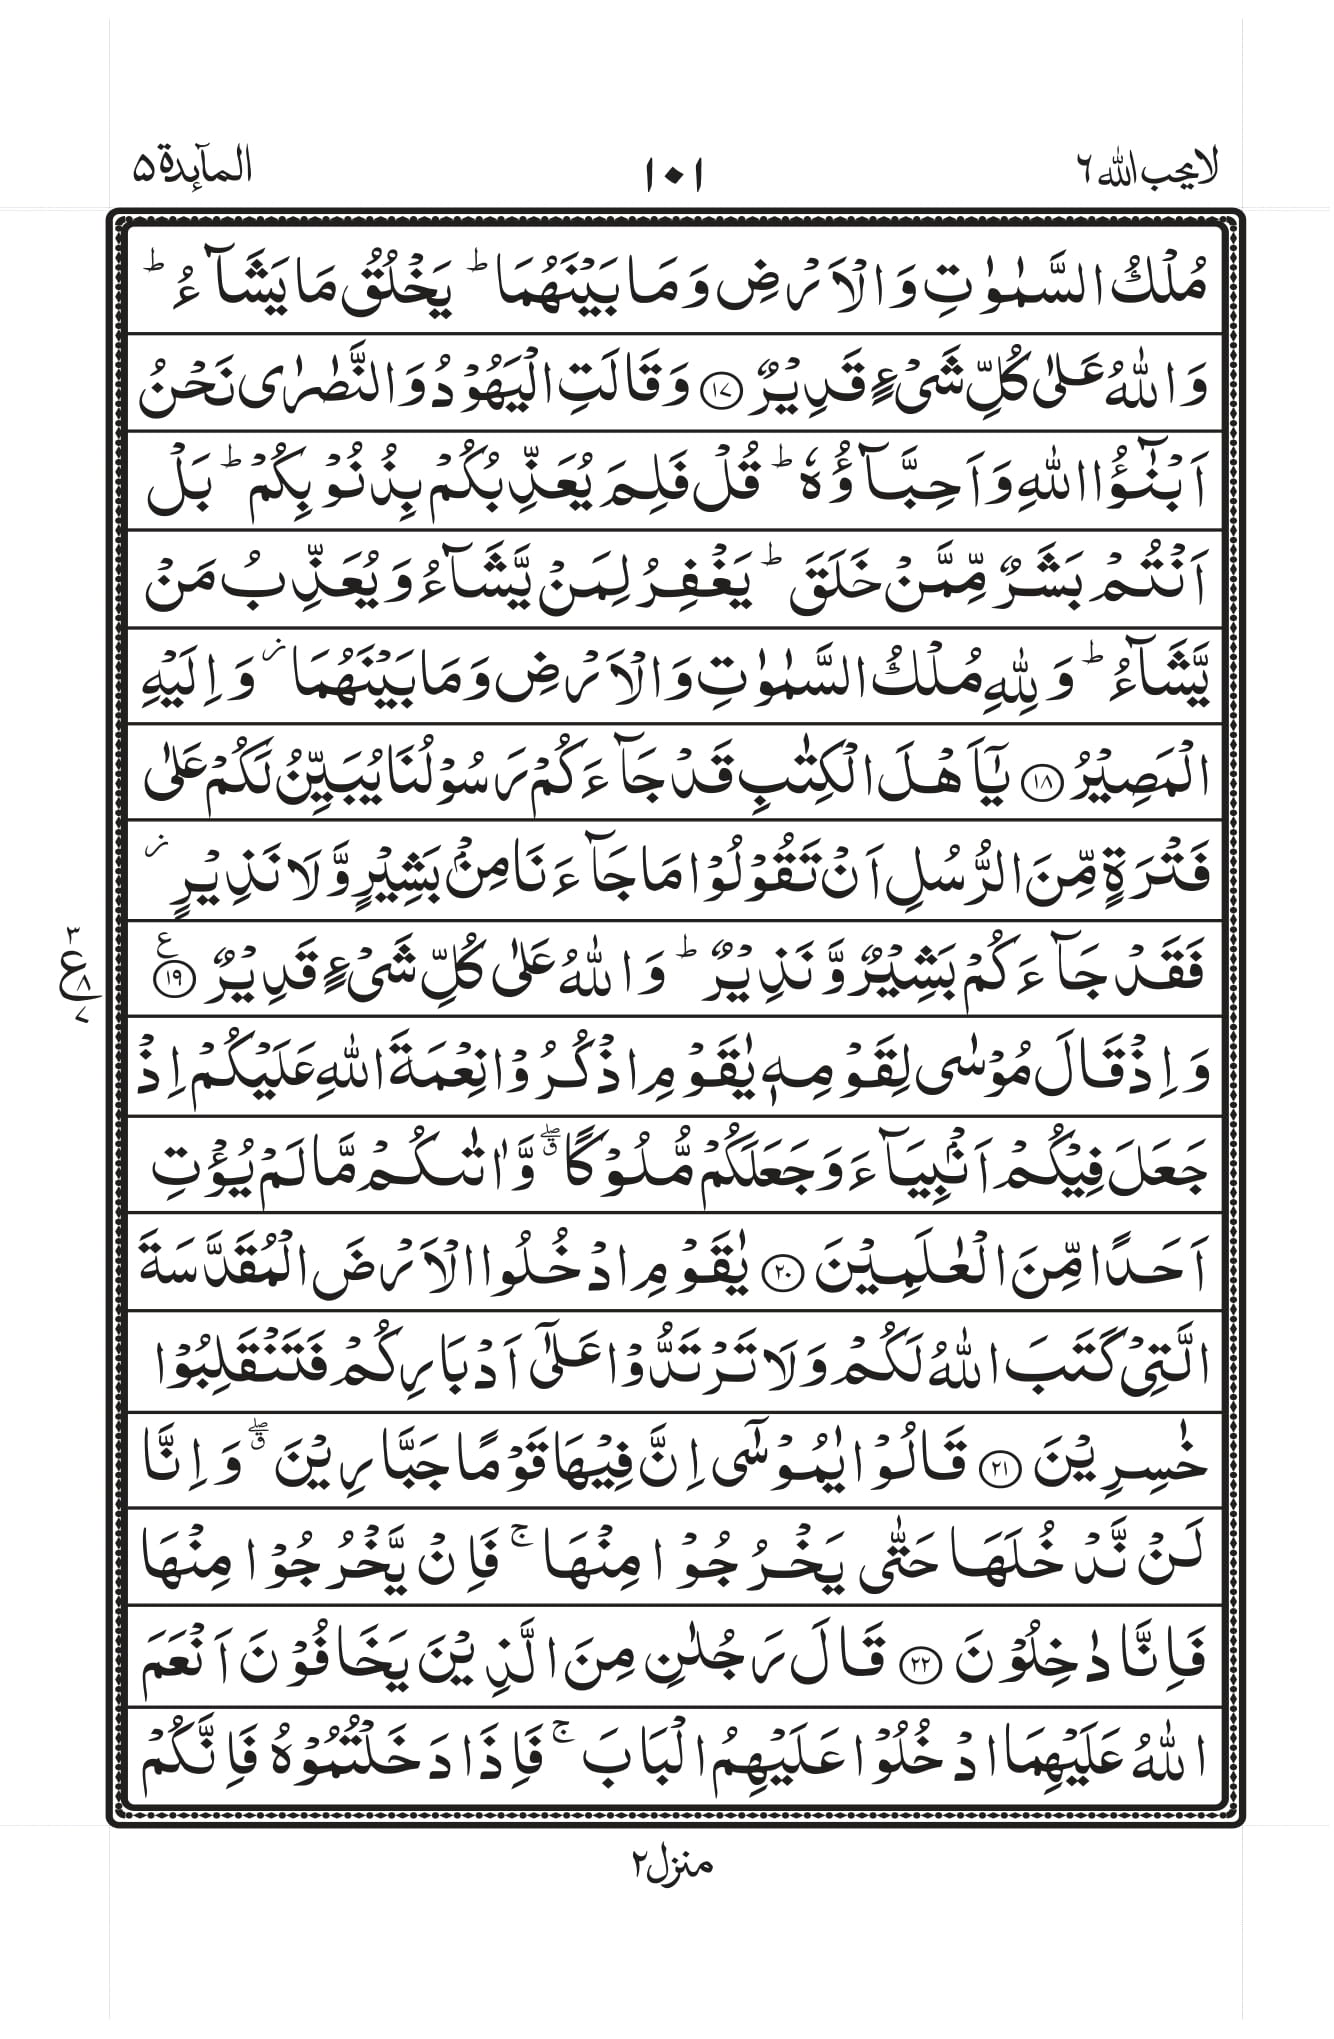 لا یحب اللہ ۶
۱۰۱
المآىِٕدة ۵
مُلْكُ السَّمٰوٰتِ وَالْاَرْضِ وَمَا بَيْنَهُمَا ؕ يَخْلُقُ مَا يَشَآءُ ؕ
وَاللّٰهُ عَلٰى كُلِّ شَىْءٍ قَدِيْرٌ ۝۱۷ وَقَالَتِ الْيَهُوْدُ وَالنَّصٰرٰى نَحْنُ
اَبْنٰٓؤُا اللّٰهِ وَاَحِبَّآؤُهٗ ؕ قُلْ فَلِمَ يُعَذِّبُكُمْ بِذُنُوْبِكُمْ ؕ بَلْ
اَنْتُمْ بَشَرٌ مِّمَّنْ خَلَقَ ؕ يَغْفِرُ لِمَنْ يَّشَآءُ وَيُعَذِّبُ مَنْ
يَّشَآءُ ؕ وَلِلّٰهِ مُلْكُ السَّمٰوٰتِ وَالْاَرْضِ وَمَا بَيْنَهُمَا ؗ وَاِلَيْهِ
الْمَصِيْرُ ۝۱۸ يٰۤاَهْلَ الْكِتٰبِ قَدْ جَآءَكُمْ رَسُوْلُنَا يُبَيِّنُ لَكُمْ عَلٰى
فَتْرَةٍ مِّنَ الرُّسُلِ اَنْ تَقُوْلُوْا مَا جَآءَنَا مِنْۢ بَشِيْرٍ وَّلَا نَذِيْرٍ ؗ
فَقَدْ جَآءَكُمْ بَشِيْرٌ وَّنَذِيْرٌ ؕ وَاللّٰهُ عَلٰى كُلِّ شَىْءٍ قَدِيْرٌ ۝۱۹ ع
۳ ع ۸ ۷
وَاِذْ قَالَ مُوْسٰى لِقَوْمِهٖ يٰقَوْمِ اذْكُرُوْا نِعْمَةَ اللّٰهِ عَلَيْكُمْ اِذْ
جَعَلَ فِيْكُمْ اَنْۢبِيَآءَ وَجَعَلَكُمْ مُّلُوْكًا ۖۗ وَّاٰتٰىكُمْ مَّا لَمْ يُؤْتِ
اَحَدًا مِّنَ الْعٰلَمِيْنَ ۝۲۰ يٰقَوْمِ ادْخُلُوا الْاَرْضَ الْمُقَدَّسَةَ
الَّتِىْ كَتَبَ اللّٰهُ لَكُمْ وَلَا تَرْتَدُّوْا عَلٰٓى اَدْبَارِكُمْ فَتَنْقَلِبُوْا
خٰسِرِيْنَ ۝۲۱ قَالُوْا يٰمُوْسٰٓى اِنَّ فِيْهَا قَوْمًا جَبَّارِيْنَ ۖۗ وَاِنَّا
لَنْ نَّدْخُلَهَا حَتّٰى يَخْرُجُوْا مِنْهَا ۚ فَاِنْ يَّخْرُجُوْا مِنْهَا
فَاِنَّا دٰخِلُوْنَ ۝۲۲ قَالَ رَجُلٰنِ مِنَ الَّذِيْنَ يَخَافُوْنَ اَنْعَمَ
اللّٰهُ عَلَيْهِمَا ادْخُلُوْا عَلَيْهِمُ الْبَابَ ۚ فَاِذَا دَخَلْتُمُوْهُ فَاِنَّكُمْ
منزل ۲